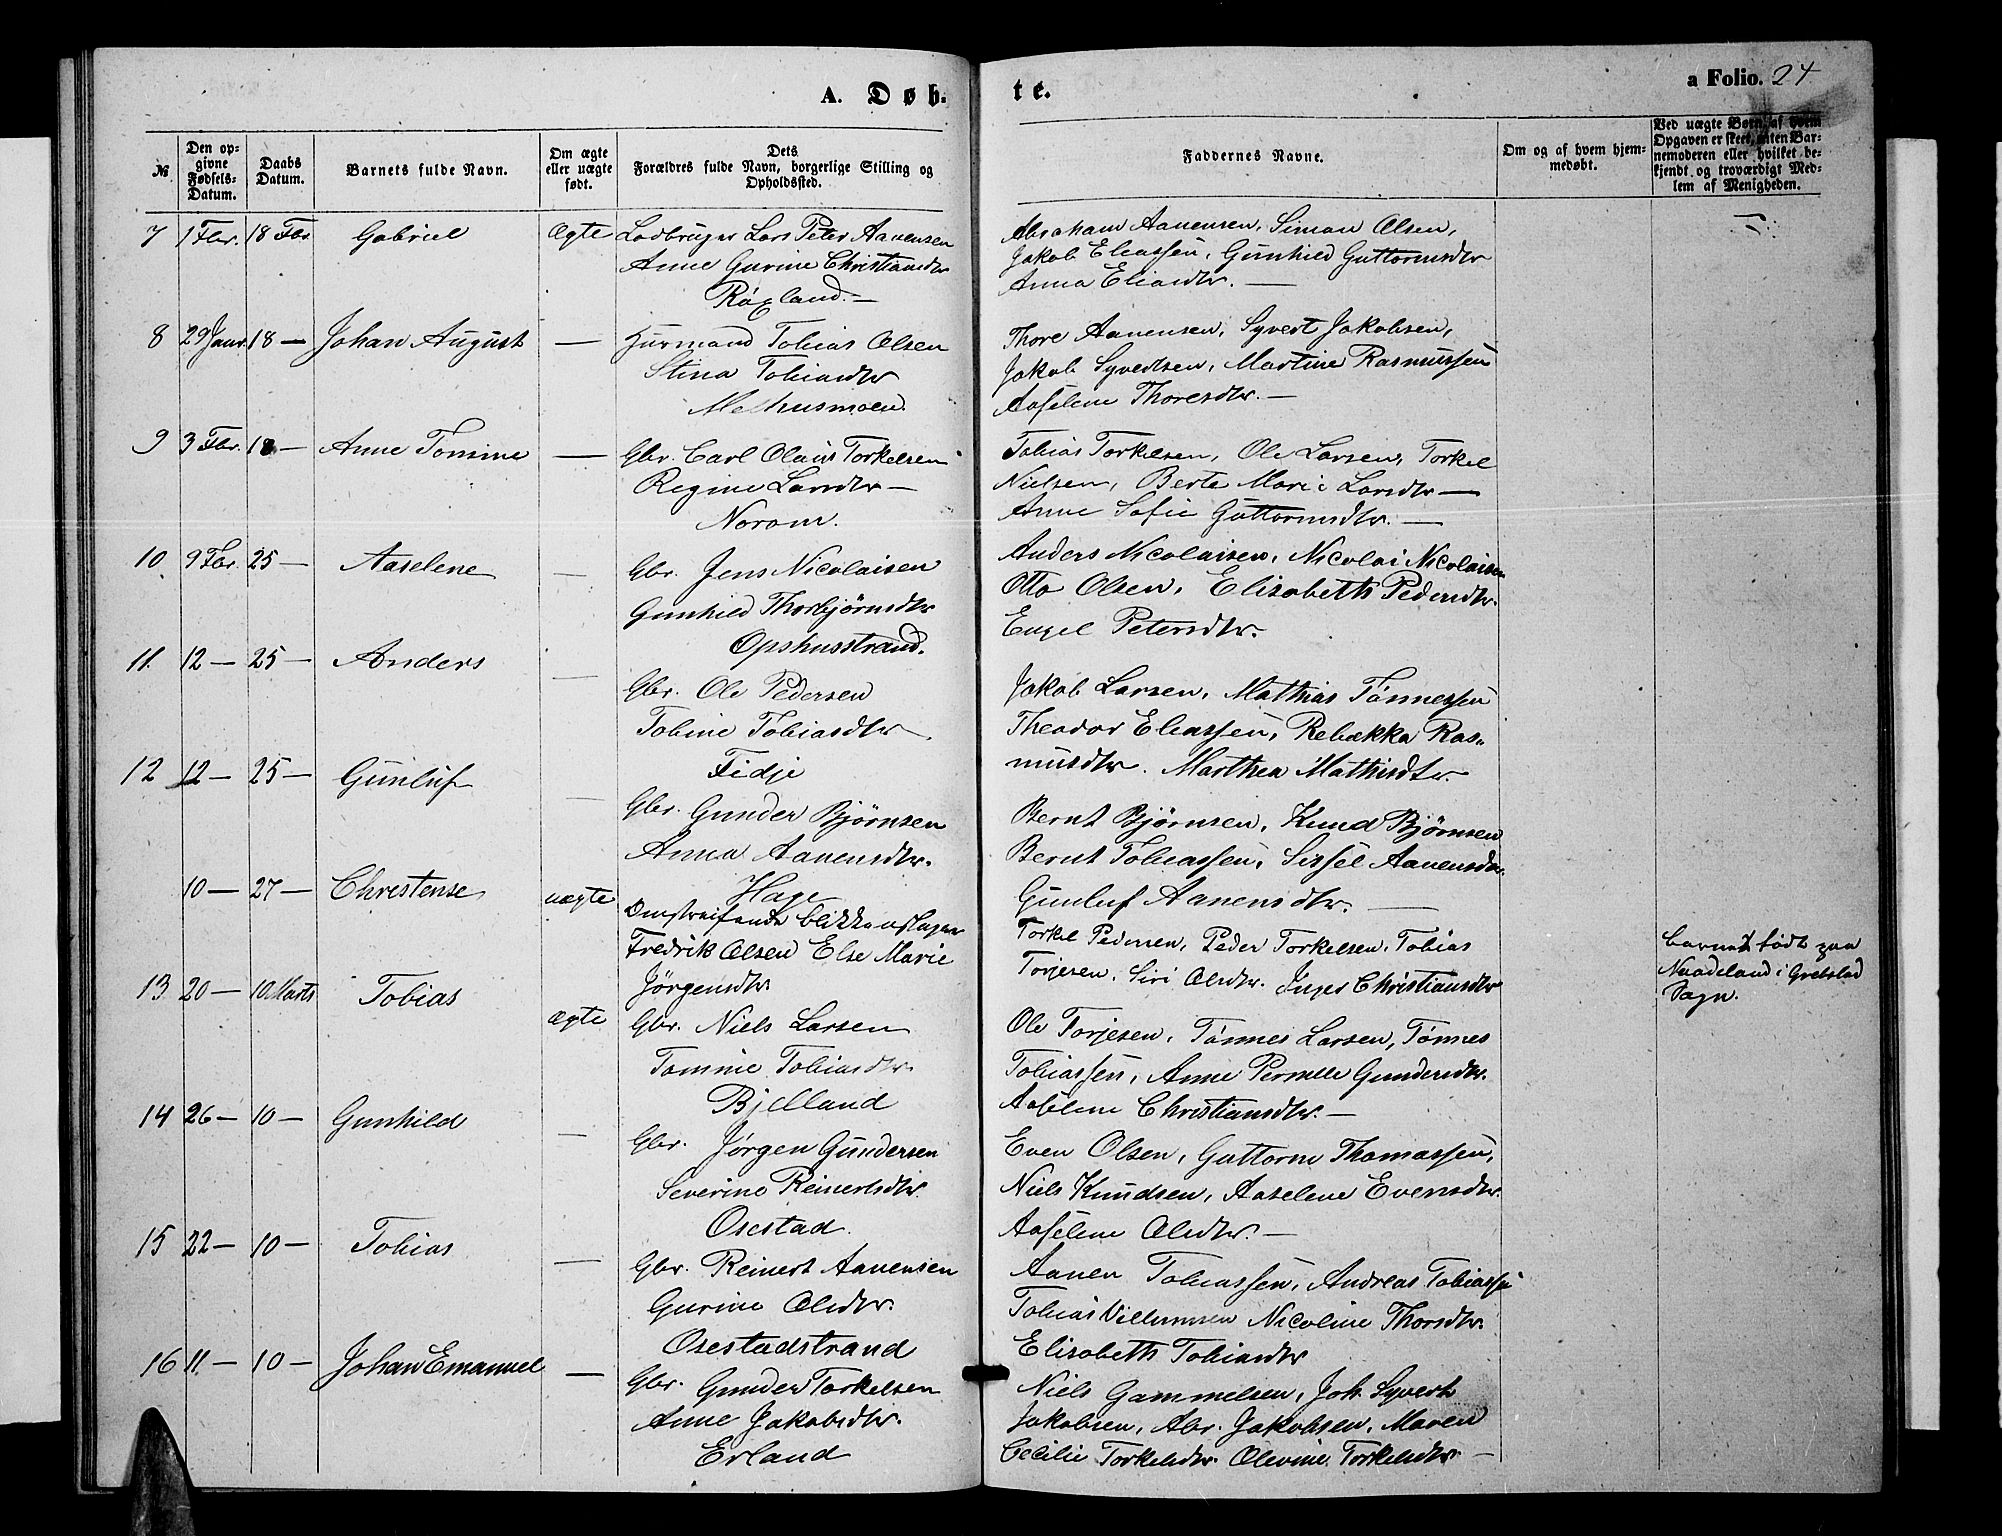 A. Døb-
te.
a Folio. 24
№
Den op-
givne
Fødsels-
Datum.
Daabs
Datum.
Barnets fulde Navn.
Om ægte
eller uægte
født.
Dets
Forældres fulde Navn, borgerlige Stilling og
Opholdssted.
Faddernes Navne.
Om og af hvem hjem-
medøbt.
Ved uægte Børn, af hvem
Opgaven er skeet, enten Bar-
nemoderen eller hvilket be-
kjendt og troværdigt Med-
lem af Menigheden.
7 1 Fbr. 18 Fbr Gabriel Ægte Ladbruger Lars Peter Aanensen
Anne Gurine Christiansdtr
Røxland. —
Abraham Aanensen, Simon Olsen,
Jakob Eliassen, Gunhild Guttormsdtr
Anna Eliasdtr. —
8 29 Janr. 18 — Johan August — Huusmand Tobias Olsen
Stina Tobiasdtr
Melhusmoen.
Thore Aanensen, Syvert Jakobsen,
Jakob Syvertsen, Martine Rasmussen
Aaselene Thoresdtr. —
9 3 Fbr. 18 — Anne Tomine — Gbr. Carl Olaus Torkelsen
Regine Larsdtr —
Norom.
Tobias Torkelsen, Ole Larsen, Torkel
Nielsen, Berte Marie Larsdtr —
Anne Sofie Guttormsdtr. —
10 9 Fbr. 25 — Aaselene — Gbr. Jens Nicolaisen
Gunhild Thorbjørnsdtr
Opshusstrand.
Anders Nicolaisen, Nicolai Nicolaisen
Otto Olsen, Elisabeth Pedersdtr.
Engel Petersdtr.
11. 12 — 25 — Anders — Gbr. Ole Pedersen
Tobine Tobiasdtr
Fidje
Jakob Larsen, Mathias Tønnessen
Theodor Eliassen, Rebækka Ras-
musdtr. Marthea Mathisdtr.
12 12 — 25 — Gunluf — Gbr. Gunder Bjørnsen
Anna Aanensdtr.
Hage
Bernt Bjørnsen, Knud Bjørnsen
Bernt Tobiassen, Sissel Aanensdtr.
Gunluf Aanensdtr. —
10 — 27 — Christense uægte Omstreifende blikkenslager
Fredrik Olsen Else Marie
Jørgensdtr.
Torkel Pedersen, Peder Torkelsen, Tobias
Torjesen, Siri Olsdtr. Inger Christiansdtr
barnet født paa
Naadeland i Grebstad
Sogn.
13 20 — 10 Marts Tobias ægte Gbr. Niels Larsen
Tomine Tobiasdtr.
Bjelland
Ole Torjesen, Tønnes Larsen, Tønnes
Tobiassen, Anne Pernelle Gundersdtr.
Aaselene Christiansdtr. —
14 26 — 10 — Gunhild — Gbr. Jørgen Gundersen
Severine Reinertsdtr.
Osestad.
Even Olsen, Guttorm Thomassen,
Niels Knudsen, Aaselene Evensdtr.
Aaselene Olsdtr. —
15 22 — 10 — Tobias — Gbr. Reinert Aanensen
Gurine Olsdtr.
Osestadstrand
Aanen Tobiassen, Andreas Tobiassen
Tobias Villumsen Nicoline Thorsdtr.
Elisabeth Tobiasdtr
16 11 — 10 — Johan Emanuel — Gbr. Gunder Torkelsen
Anne Jakobsdtr.
Erland
Niels Gammelsen, Joh. Syvert
Jakobsen, Abr. Jakobsen, Maren
Cecilie Torkelsdtr. Olevine Torkelsdtr. —